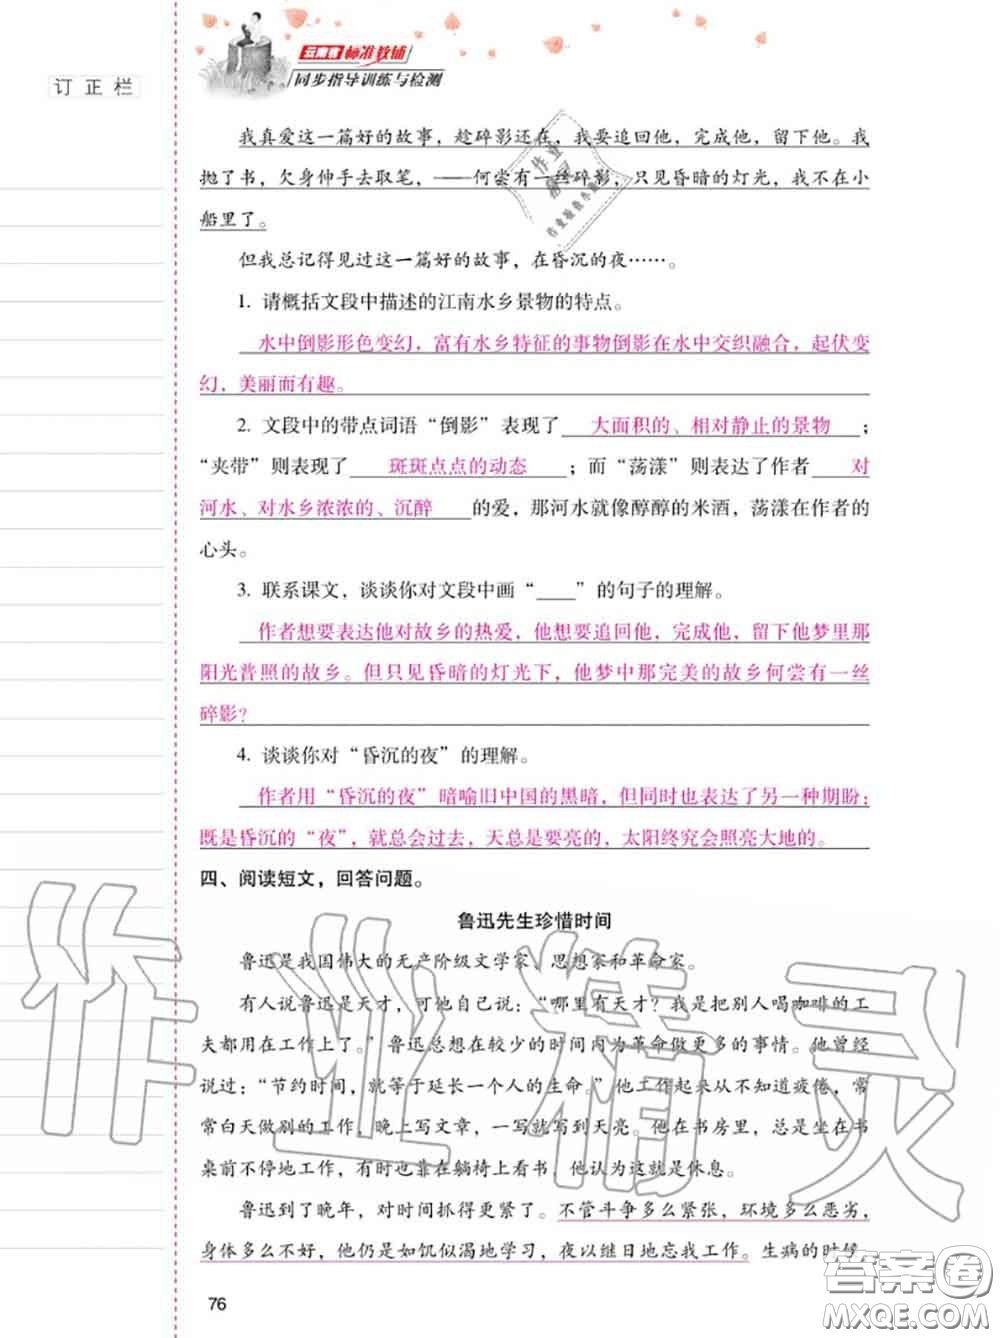 云南省标准教辅
同步指导训练与检测
订正栏
我真爱这一篇好的故事，趁碎影还在，我要追回他，完成他，留下他。我
抛了书，欠身伸手去取笔，——何尝有一丝碎影，只见昏暗的灯光，我不在小
船里了。
但我总记得见过这一篇好的故事，在昏沉的夜……。
1. 请概括文段中描述的江南水乡景物的特点。
水中倒影形色变幻，富有水乡特征的事物倒影在水中交织融合，起伏变
幻，美丽而有趣。
2. 文段中的带点词语“倒影”表现了 大面积的、相对静止的景物 ；
“夹带”则表现了 斑斑点点的动态 ；而“荡漾”则表达了作者 对
河水、对水乡浓浓的、沉醉 的爱，那河水就像醇醇的米酒，荡漾在作者的
心头。
3. 联系课文，谈谈你对文段中画“____”的句子的理解。
作者想要表达他对故乡的热爱，他想要追回他，完成他，留下他梦里那
阳光普照的故乡。但只见昏暗的灯光下，他梦中那完美的故乡何尝有一丝
碎影？
4. 谈谈你对“昏沉的夜”的理解。
作者用“昏沉的夜”暗喻旧中国的黑暗，但同时也表达了另一种期盼：
既是昏沉的“夜”，就总会过去，天总是要亮的，太阳终究会照亮大地的。
四、阅读短文，回答问题。
鲁迅先生珍惜时间
鲁迅是我国伟大的无产阶级文学家、思想家和革命家。
有人说鲁迅是天才，可他自己说：“哪里有天才？我是把别人喝咖啡的工
夫都用在工作上了。”鲁迅总想在较少的时间内为革命做更多的事情。他曾经
说过：“节约时间，就等于延长一个人的生命。”他工作起来从不知道疲倦，常
常白天做别的工作，晚上写文章，一写就写到天亮。他在书房里，总是坐在书
桌前不停地工作，有时也靠在躺椅上看书，他认为这就是休息。
鲁迅到了晚年，对时间抓得更紧了。不管斗争多么紧张，环境多么恶劣，
身体多么不好，他仍是如饥似渴地学习，夜以继日地忘我工作。生病的时候，
76
作业精灵
答案圈
MXQE.COM